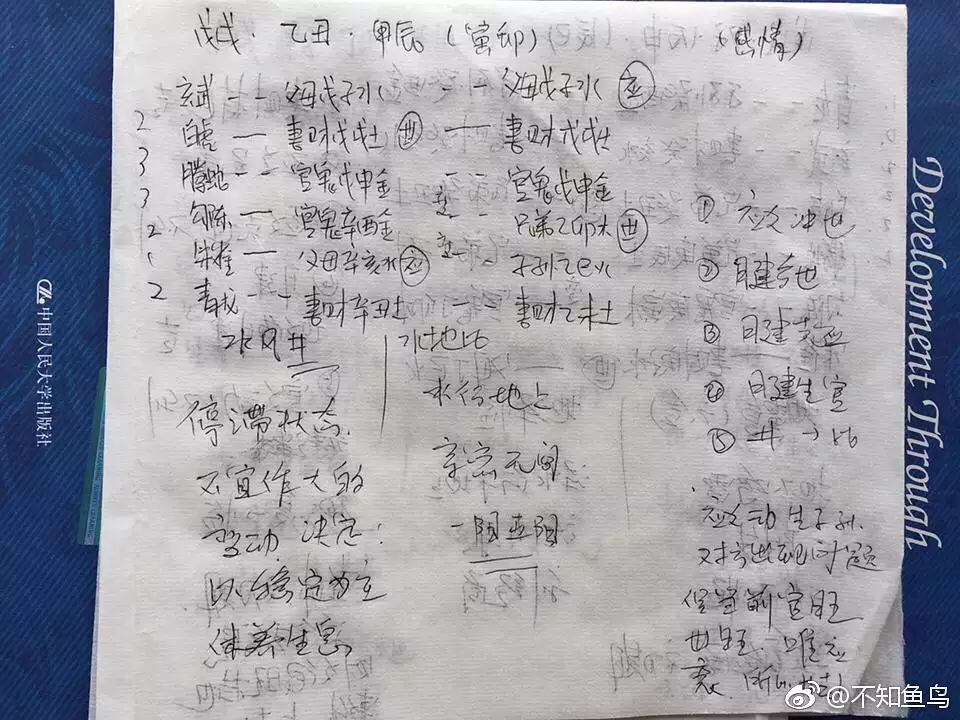 戊戌·乙丑·甲辰(寅卯) (感情)
玄武 -- 父母戊子水 -- 父母戊子水 应
2 白虎 — 妻财戊戌土 世 — 妻财戊戌土
3 腾蛇 -- 官鬼戊申金 -- 官鬼戊申金
3 勾陈 — 官鬼辛酉金 -- 兄弟乙卯木 世
2 朱雀 — 父母辛亥水 应 -- 子孙乙巳火
2 青龙 -- 妻财辛丑土 -- 妻财乙未土
水风井
水地比
停滞状态
不宜作大的
变动 决定:
以稳定为主
休养生息
水行地上
亲密无间
一阳五阴
① 应爻冲世
② 日建合世
③ 日建克应
④ 日建生官
⑤ 井→比
应爻动生子孙.
对方出现问题
但
世旺 唯应
衰
中国人民大学出版社
Development Through
@不知鱼鸟